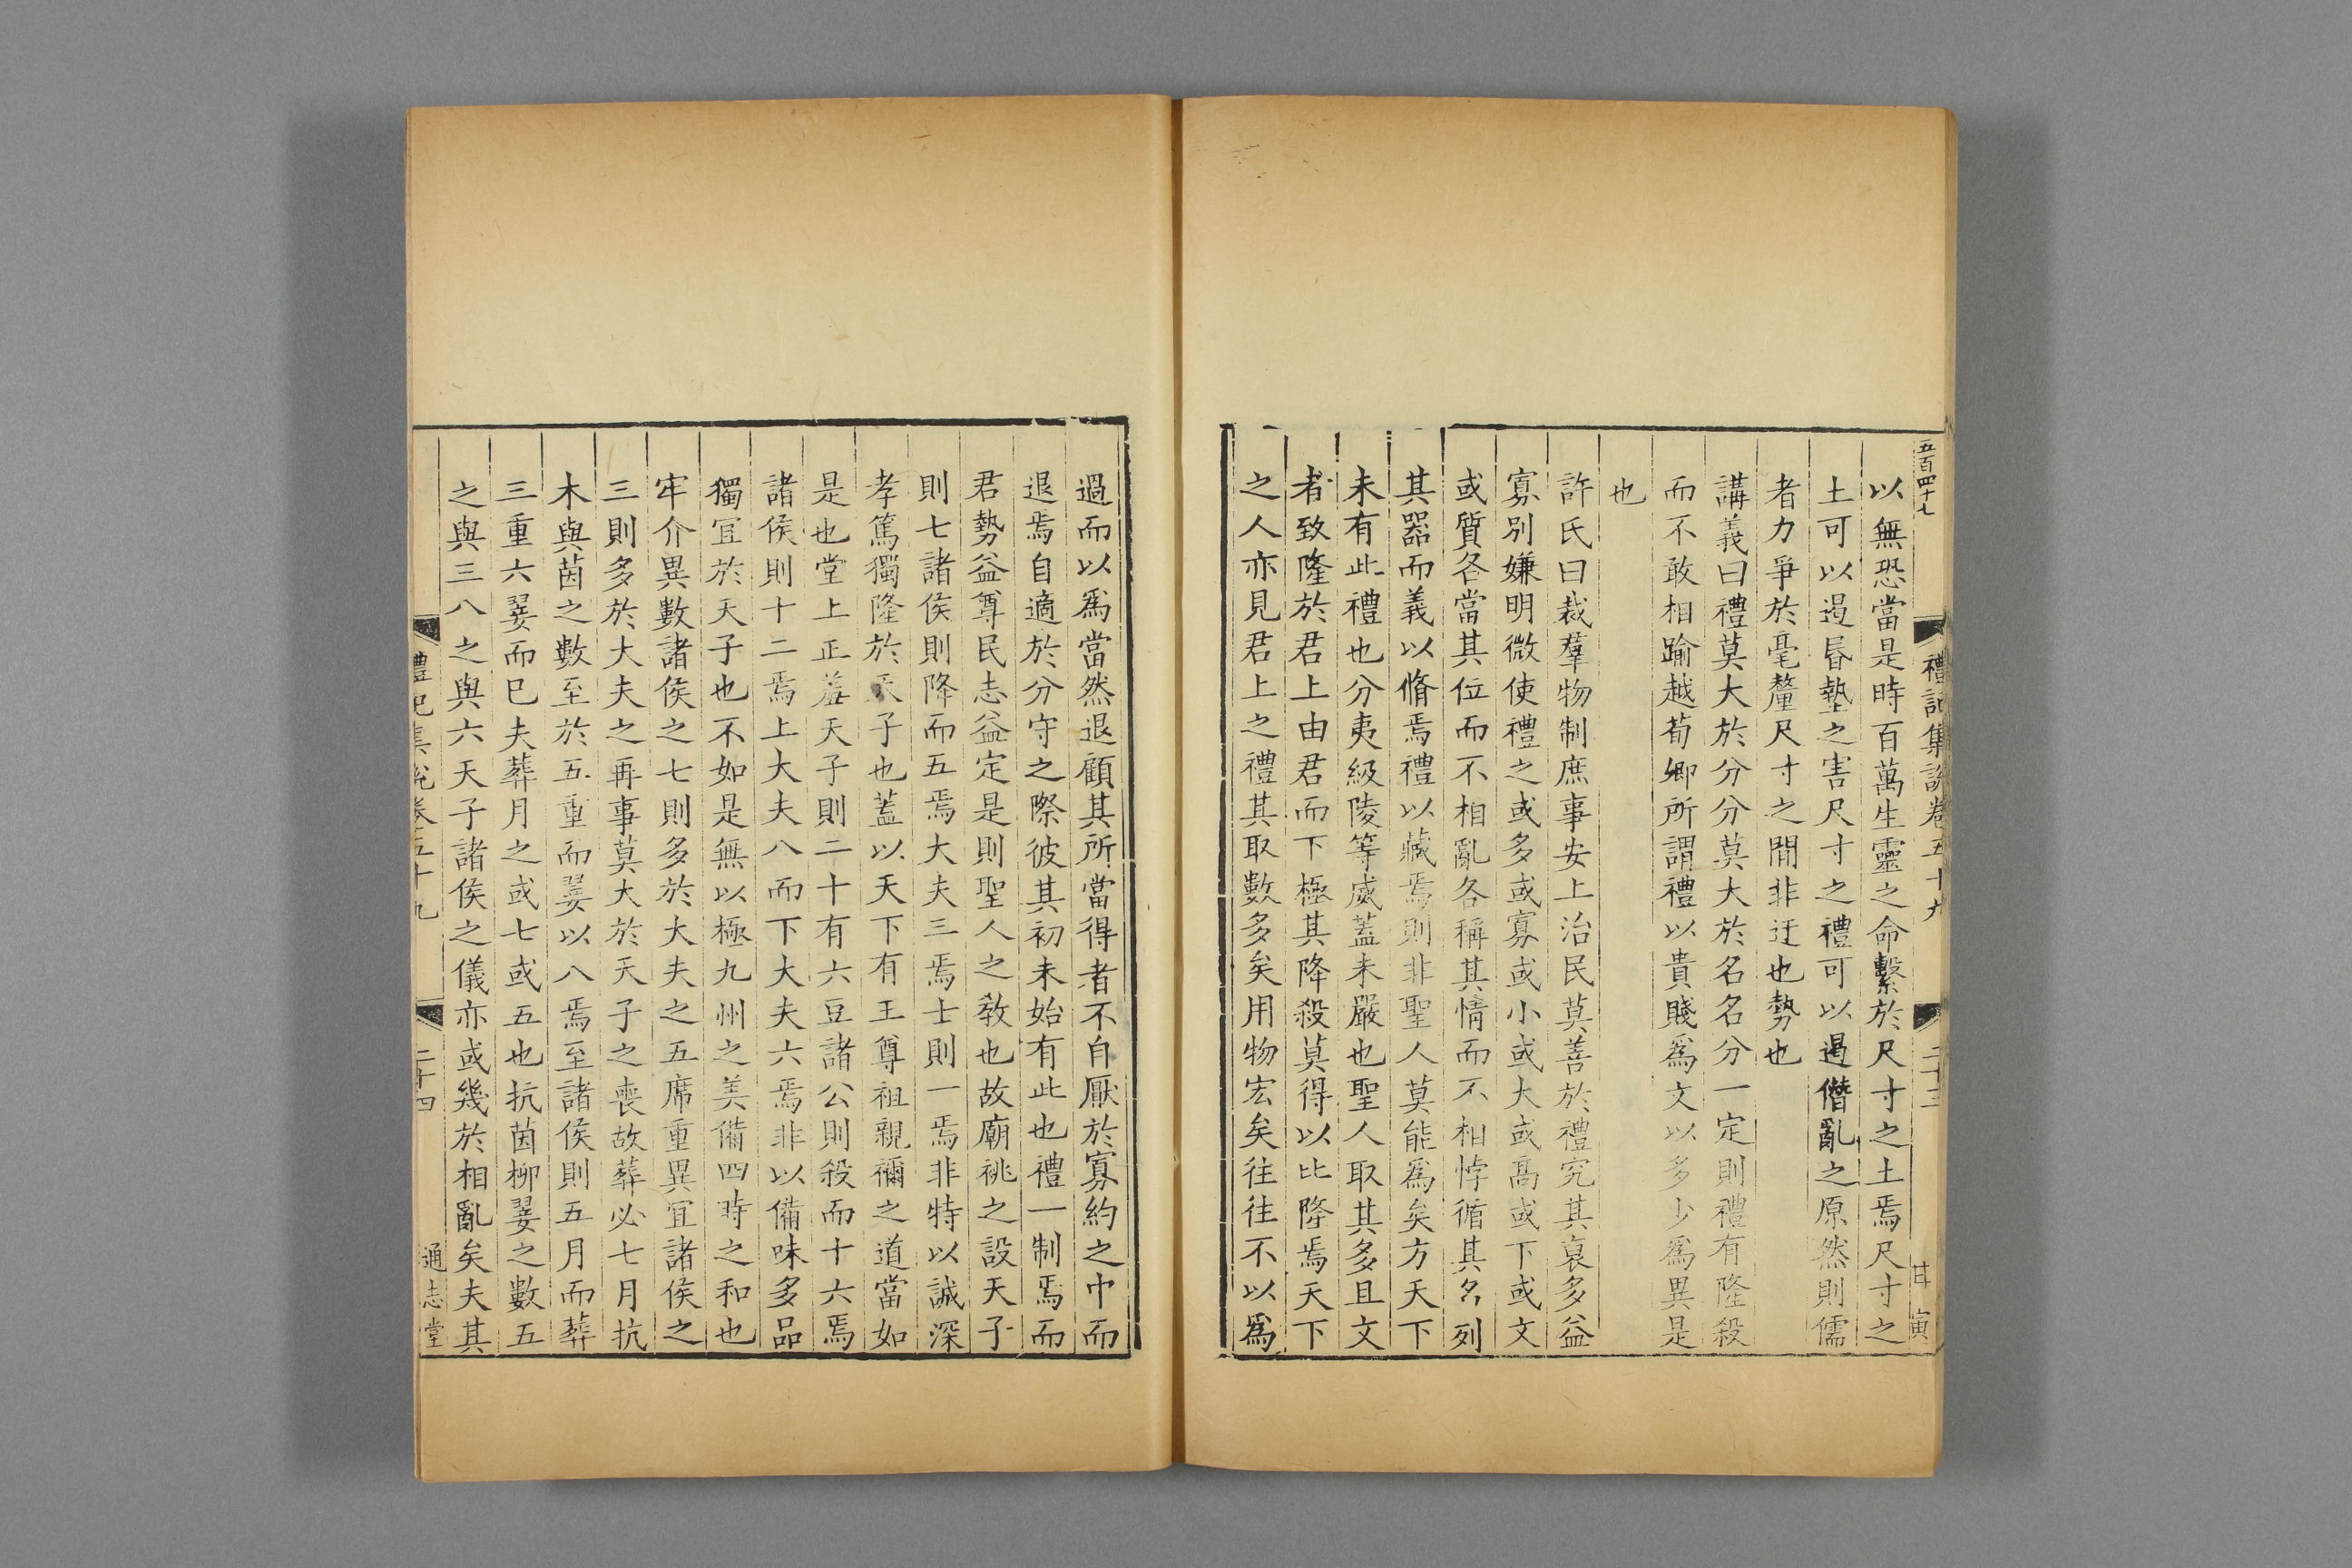 五百四十七
禮記集說卷五十九
二十三
甘寅
以無恐當是時百萬生靈之命繫於尺寸之土焉尺寸之
土可以遏昬墊之害尺寸之禮可以遏僭亂之原然則儒
者力爭於毫釐尺寸之間非迂也勢也
講義曰禮莫大於分分莫大於名名分一定則禮有隆殺
而不敢相踰越荀卿所謂禮以貴賤爲文以多少爲異是
也
許氏曰裁羣物制庶事安上治民莫善於禮究其裒多益
寡別嫌明微使禮之或多或寡或小或大或高或下或文
或質各當其位而不相亂各稱其情而不相悖循其名列
其器而義以脩焉禮以藏焉則非聖人莫能爲矣方天下
未有此禮也分夷級陵等威蓋未嚴也聖人取其多且文
者致隆於君上由君而下極其降殺莫得以比隆焉天下
之人亦見君上之禮其取數多矣用物宏矣往往不以爲
過而以爲當然退顧其所當得者不自厭於寡約之中而
退焉自適於分守之際彼其初未始有此也禮一制焉而
君勢益尊民志益定是則聖人之敎也故廟祧之設天子
則七諸侯則降而五焉大夫三焉士則一焉非特以誠深
孝篤獨隆於天子也蓋以天下有王尊祖親禰之道當如
是也堂上正羞天子則二十有六豆諸公則殺而十六焉
諸侯則十二焉上大夫八而下大夫六焉非以備味多品
獨宜於天子也不如是無以極九州之美備四時之和也
牢介異數諸侯之七則多於大夫之五席重異宜諸侯之
三則多於大夫之再事莫大於天子之喪故葬必七月抗
木與茵之數至於五重而翣以八焉至諸侯則五月而葬
三重六翣而已夫葬月之或七或五也抗茵柳翣之數五
之與三八之與六天子諸侯之儀亦或幾於相亂矣夫其
禮記集說卷五十九
二十四
通志堂